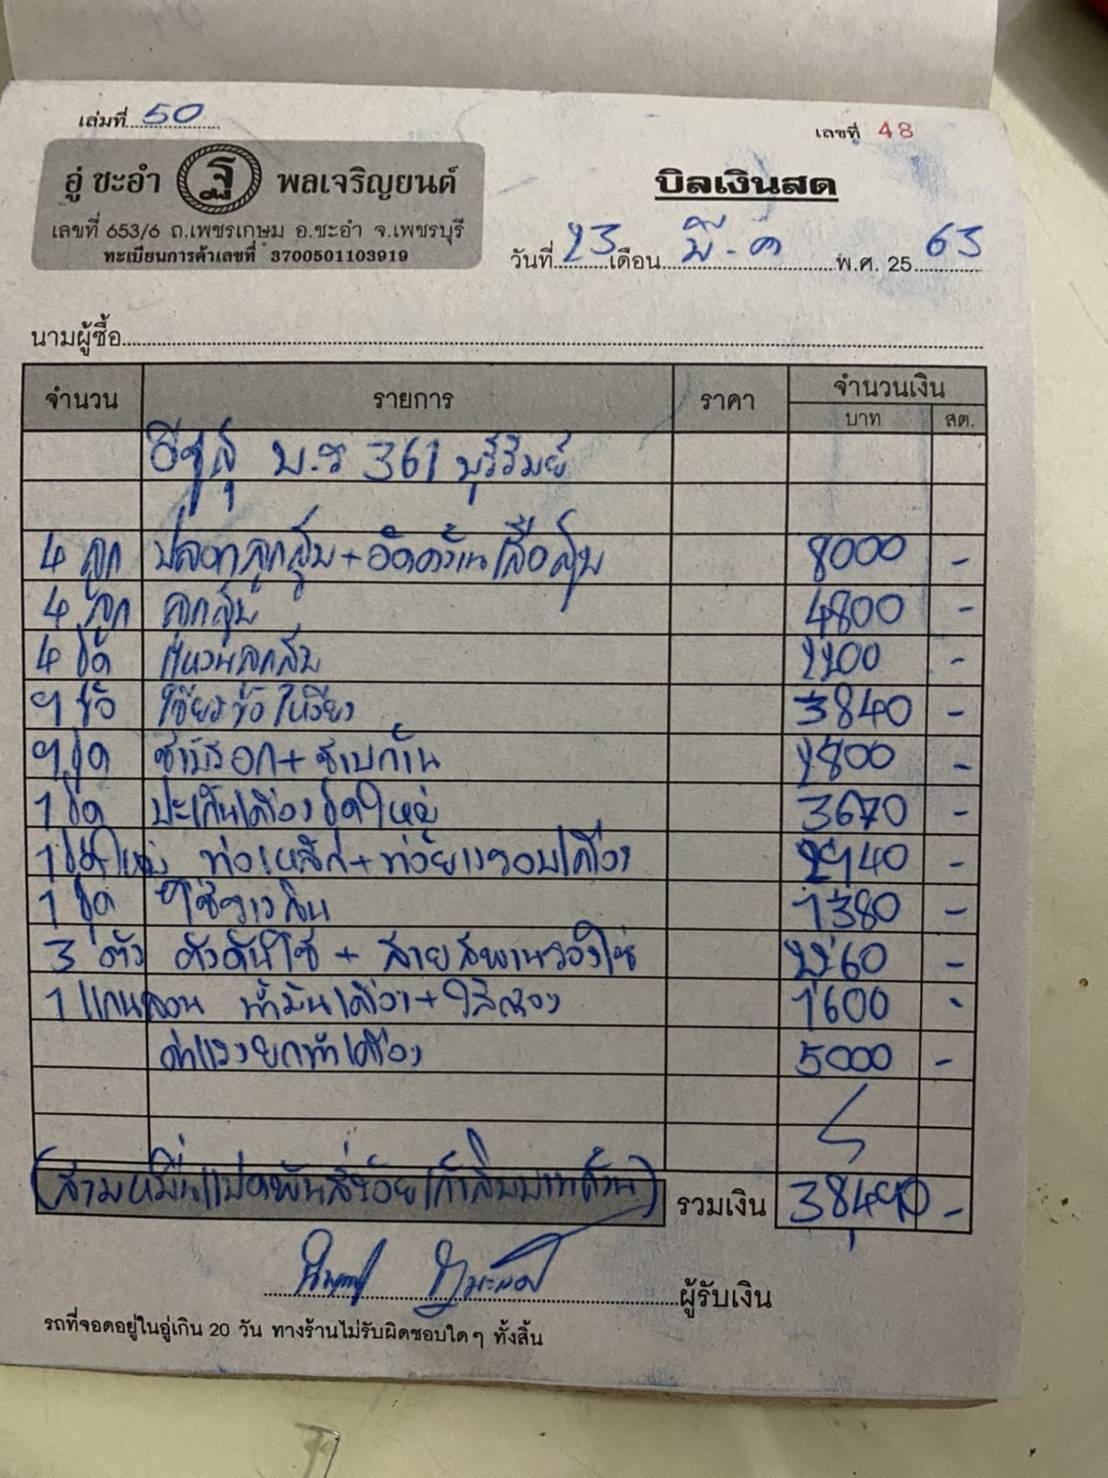 เล่มที่ 50
เลขที่ 48
อู่ ชะอำ ฐ พลเจริญยนต์
บิลเงินสด
เลขที่ 653/6 ถ.เพชรเกษม อ.ชะอำ จ.เพชรบุรี
ทะเบียนการค้าเลขที่ 3700501103919
วันที่ 23 เดือน มี.ค พ.ศ. 2563
นามผู้ซื้อ
จำนวน รายการ ราคา จำนวนเงิน
บาท สต.
อีซูสุ บ.ร 361 บุรีรัมย์
4 ลูก ปลอกลูกสูบ+อัดคว้านเสื้อสูบ 8000 -
4 ลูก ลูกสูบ 4800 -
4 ชุด แหวนลูกสูบ 2200 -
3840 -
ชาร์ปอก+ชาบก้าน 2800 -
1 ชุด ปะเก็นเครื่องชุดใหญ่ 3670 -
ท่อเหล็ก+ท่อยางรอบเครื่อง 2940 -
1 ชุด โซ่ราวลิ้น 1380 -
3 ตัว ตัวดันโซ่ + สายสพาน 2260 -
1 แกนลอน น้ำมันเครื่อง+ใส้กรอง 1600 -
ค่าแรงยกทำเครื่อง 5000 -
(สามหมื่นแปดพันสี่ร้อยเก้าสิบบาทถ้วน) รวมเงิน 38490 -
ผู้รับเงิน
รถที่จอดอยู่ในอู่เกิน 20 วัน ทางร้านไม่รับผิดชอบใดๆ ทั้งสิ้น